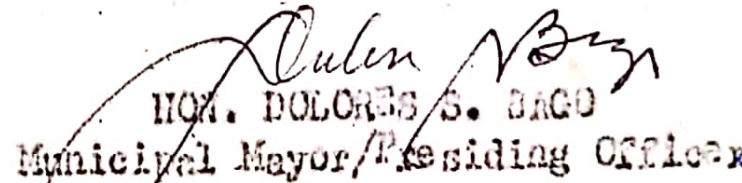 HON. DOLORES S. BAGO
Municipal Mayor/Presiding Officer